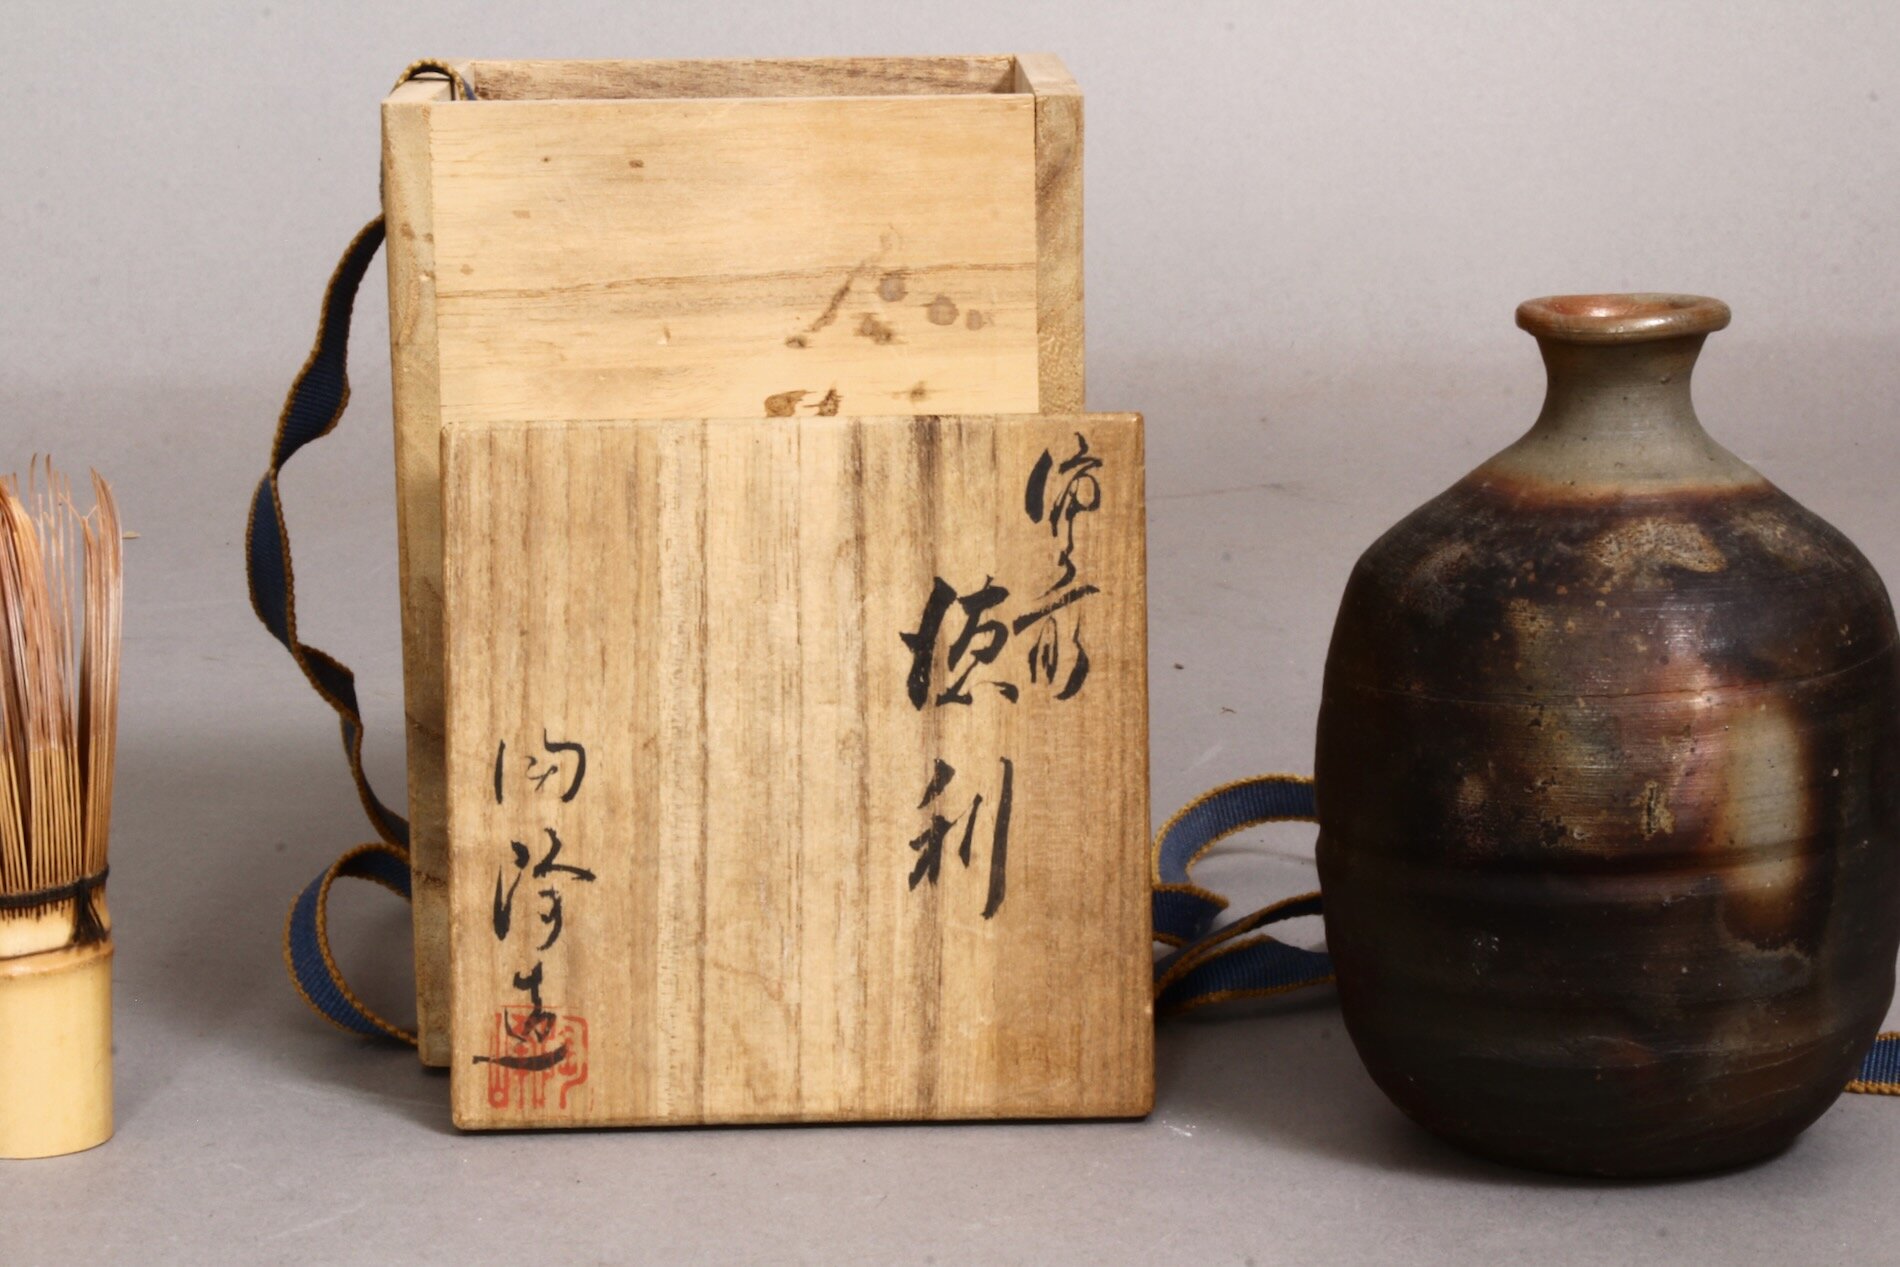 備前
徳利
陶隆造